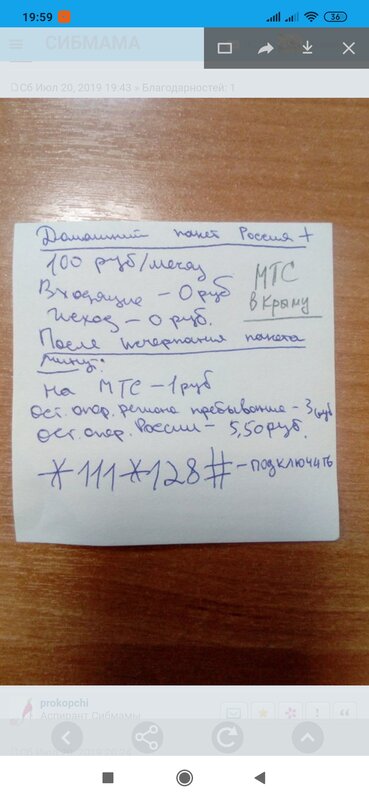 19:59
36
СИБМАМА
Сб Июл 20, 2019 19:43 » Благодарностей: 1
Домашний пакет Россия +
100 руб/месяц
МТС
в Крыму
Входящие - 0 руб
Исход - 0 руб.
После исчерпания пакета
минут:
На МТС - 1 руб
ост. опер. региона пребывание - 3 руб
ост. опер. России - 5,50 руб.
*111*128# - подключить
prokopchi
Аспирант Сибмамы
Сб Июл 20, 2019 20:24